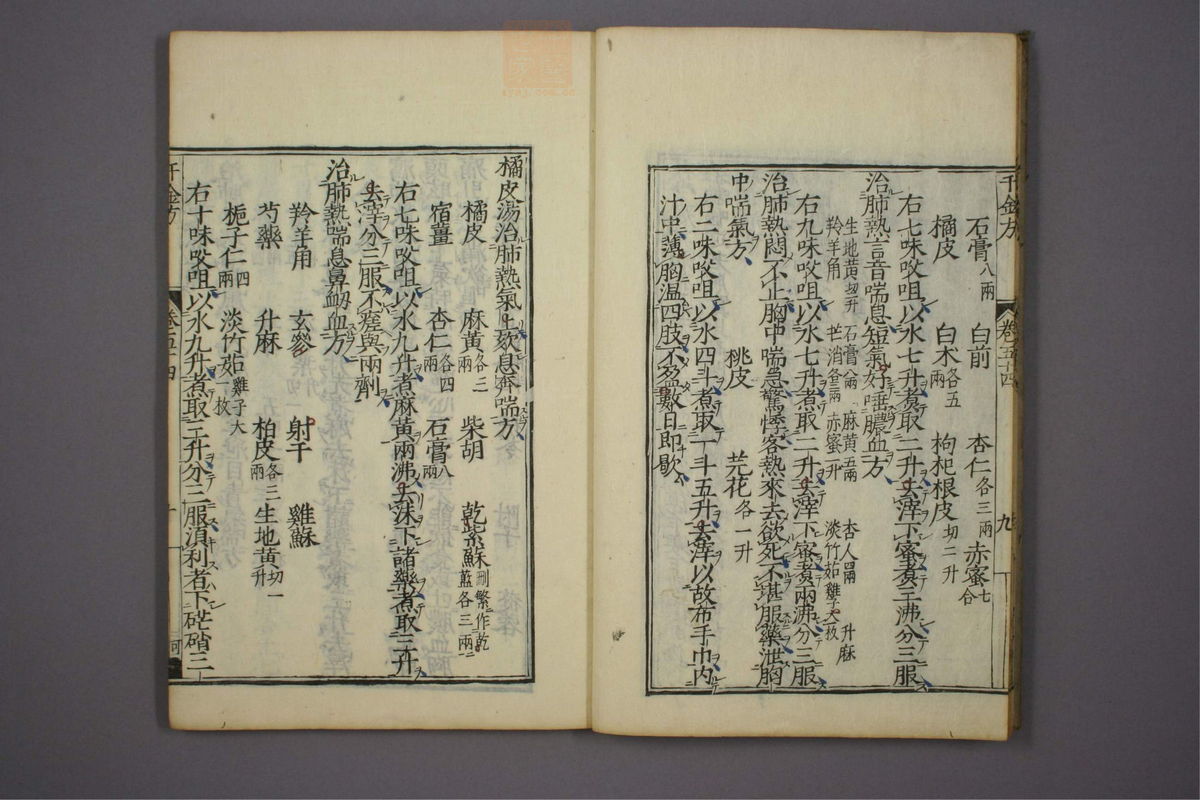 千金方 卷五十四 九
石膏八兩 白前 杏仁各三兩 赤蜜七合
橘皮 白术各五兩 枸杞根皮切二升
右七味㕮咀以水七升煮取二升去滓下蜜煮三沸分三服
治肺熱言音喘息短氣好唾膿血方
生地黄切二升 石膏八兩 麻黄五兩 杏人四兩 升麻
羚羊角 芒消各三兩 赤蜜一升 淡竹茹雞子大一枚
右九味㕮咀以水七升煮取二升去滓下蜜煮兩沸分三服
治肺熱悶不止胸中喘急驚悸客熱來去欲死不堪服藥泄胸
中喘氣方
桃皮 芫花各一升
右二味㕮咀以水四斗煮取一斗五升去滓以故布手巾内
汁中薄胸温四肢不盈數日即歇
橘皮湯治肺熱氣上欬息奔喘方
橘皮 麻黄各三兩 柴胡 乾紫蘇刪繁作乾藍各三兩
宿薑 杏仁各四兩 石膏八兩
右七味㕮咀以水九升煮麻黄兩沸去沫下諸藥煮取三升
去滓分三服不瘥與兩劑
治肺熱喘息鼻衂血方
羚羊角 玄參 射干 雞蘇
芍藥 升麻 柏皮各三兩 生地黄切一升
梔子仁四兩 淡竹茹雞子大一枚
右十味㕮咀以水九升煮取三升分三服須利者下硭硝三
千金方 卷五十四 十